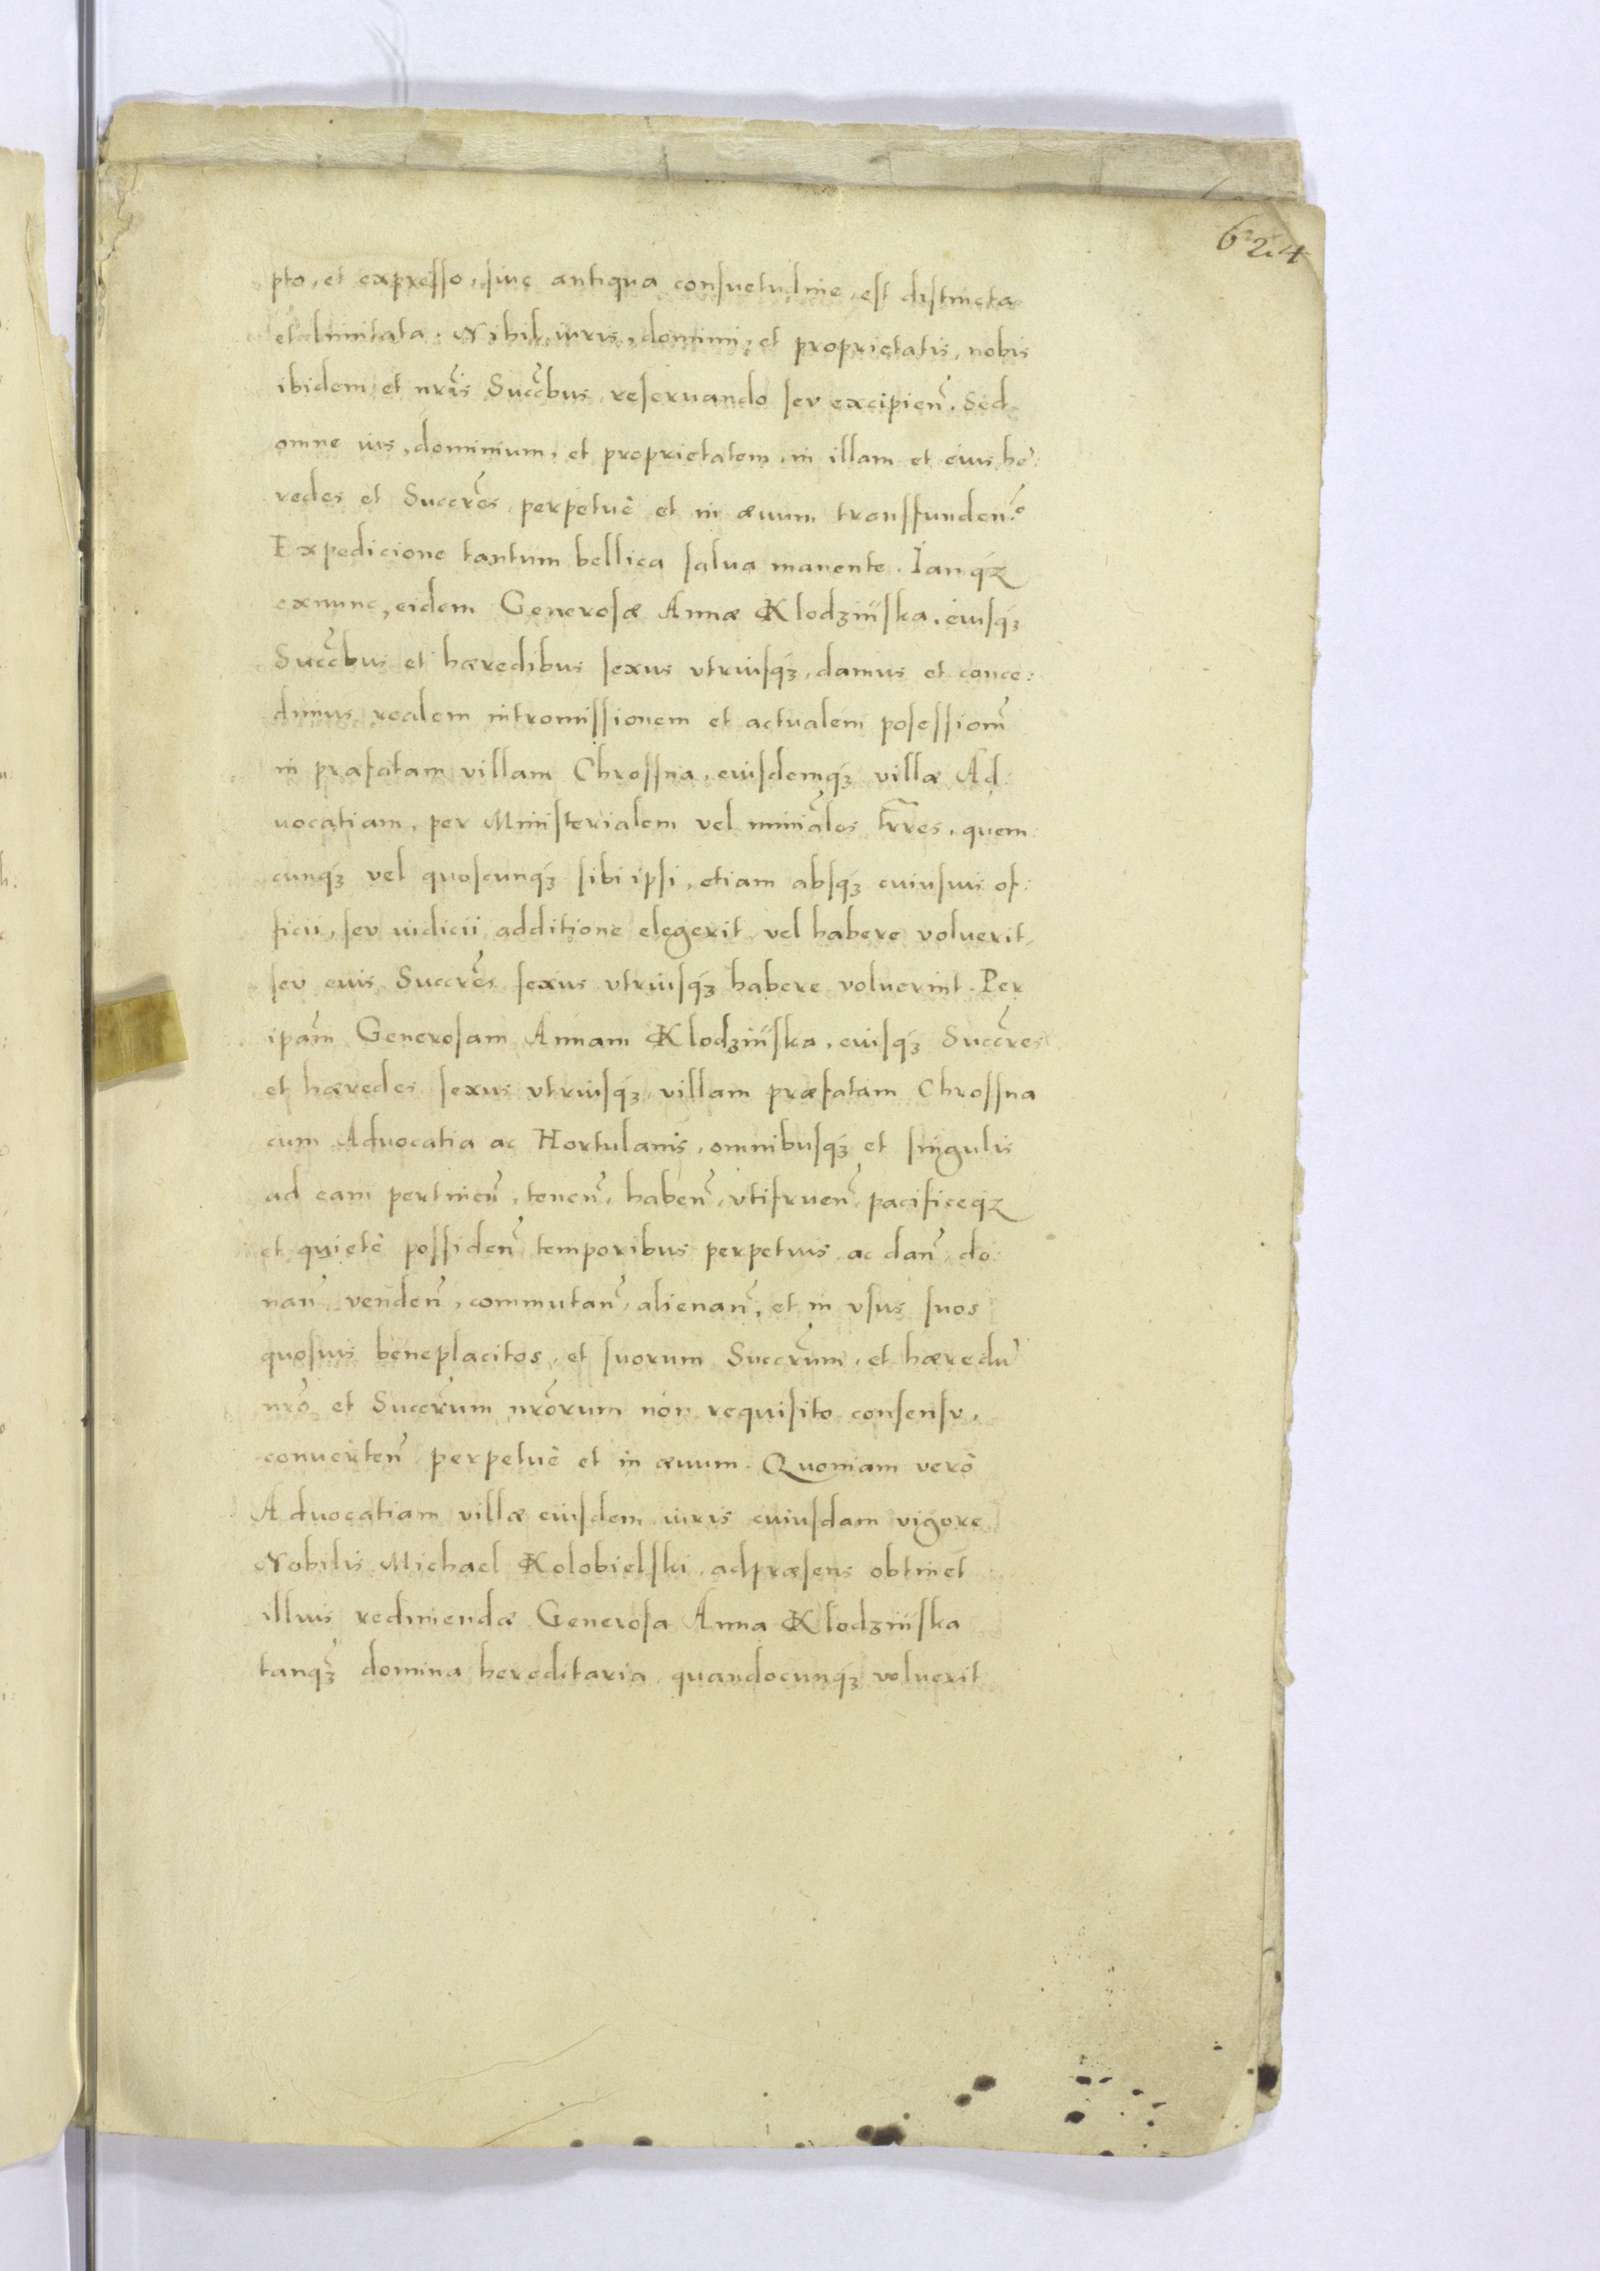 624
pto, et expresso, siue antiqua consuetudine, est distincta
et limitata. Nihil iuris, dominii, et proprietatis, nobis
ibidem et nr̃is Succ̃bus reseruando seu excipien̄. Sed
omne ius, dominium, et proprietatem, in illam et eius hę:
redes et Succr̃es perpetuè et in æuum transfunden̄.
Expedicione tantum bellica salua manente. Iamq́ꝫ
exnunc, eidem Generosæ Annæ Klodzińska, eiusq́ꝫ
Succ̃bus et hæredibus sexus vtriusq́ꝫ, damus et conce:
dimus realem intromissionem et actualem posessiom̃
in præfatam villam Chrossna, eiusdemq́ꝫ villæ Ad:
uocatiam, per Ministerialem vel miniãles tr̃res, quem
cunq́ꝫ vel quoscunq́ꝫ sibi ipsi, etiam absq́ꝫ cuiusuis of:
ficii, seu iudicii additione elegerit vel habere voluerit,
seu eius Succr̃es sexus vtriusq́ꝫ habere voluerint. Per
ipam̃ Generosam Annam Klodzińska, eiusq́ꝫ Succr̃es
et hæredes sexus vtriusq́ꝫ, villam præfatam Chrossna
cum Aduocatia ac Hortulanis, omnibusq́ꝫ et singulis
ad eam pertinen̄, tenen̄, haben̄, vtifruen̄, pacificeq́ꝫ
et quietè possiden̄ temporibus perpetuis ac dan̄, do:
nan̄ venden̄, commutan̄, alienan̄, et in vsus suos
quosuis beneplacitos, et suorum Succr̃um, et hæredũ
nr̃o et Succr̃um nr̃orum non requisito consensu,
conuerten̄ perpetuè et in æuum. Quoniam verò
Aduocatiam villæ eiusdem iuris cuiusdam vigore
Nobilis Michael Kolobielski adpræsens obtinet
illius redimendæ Generosa Anna Klodzińska
tanq́ꝫ domina hereditaria quandocunq́ꝫ voluerit